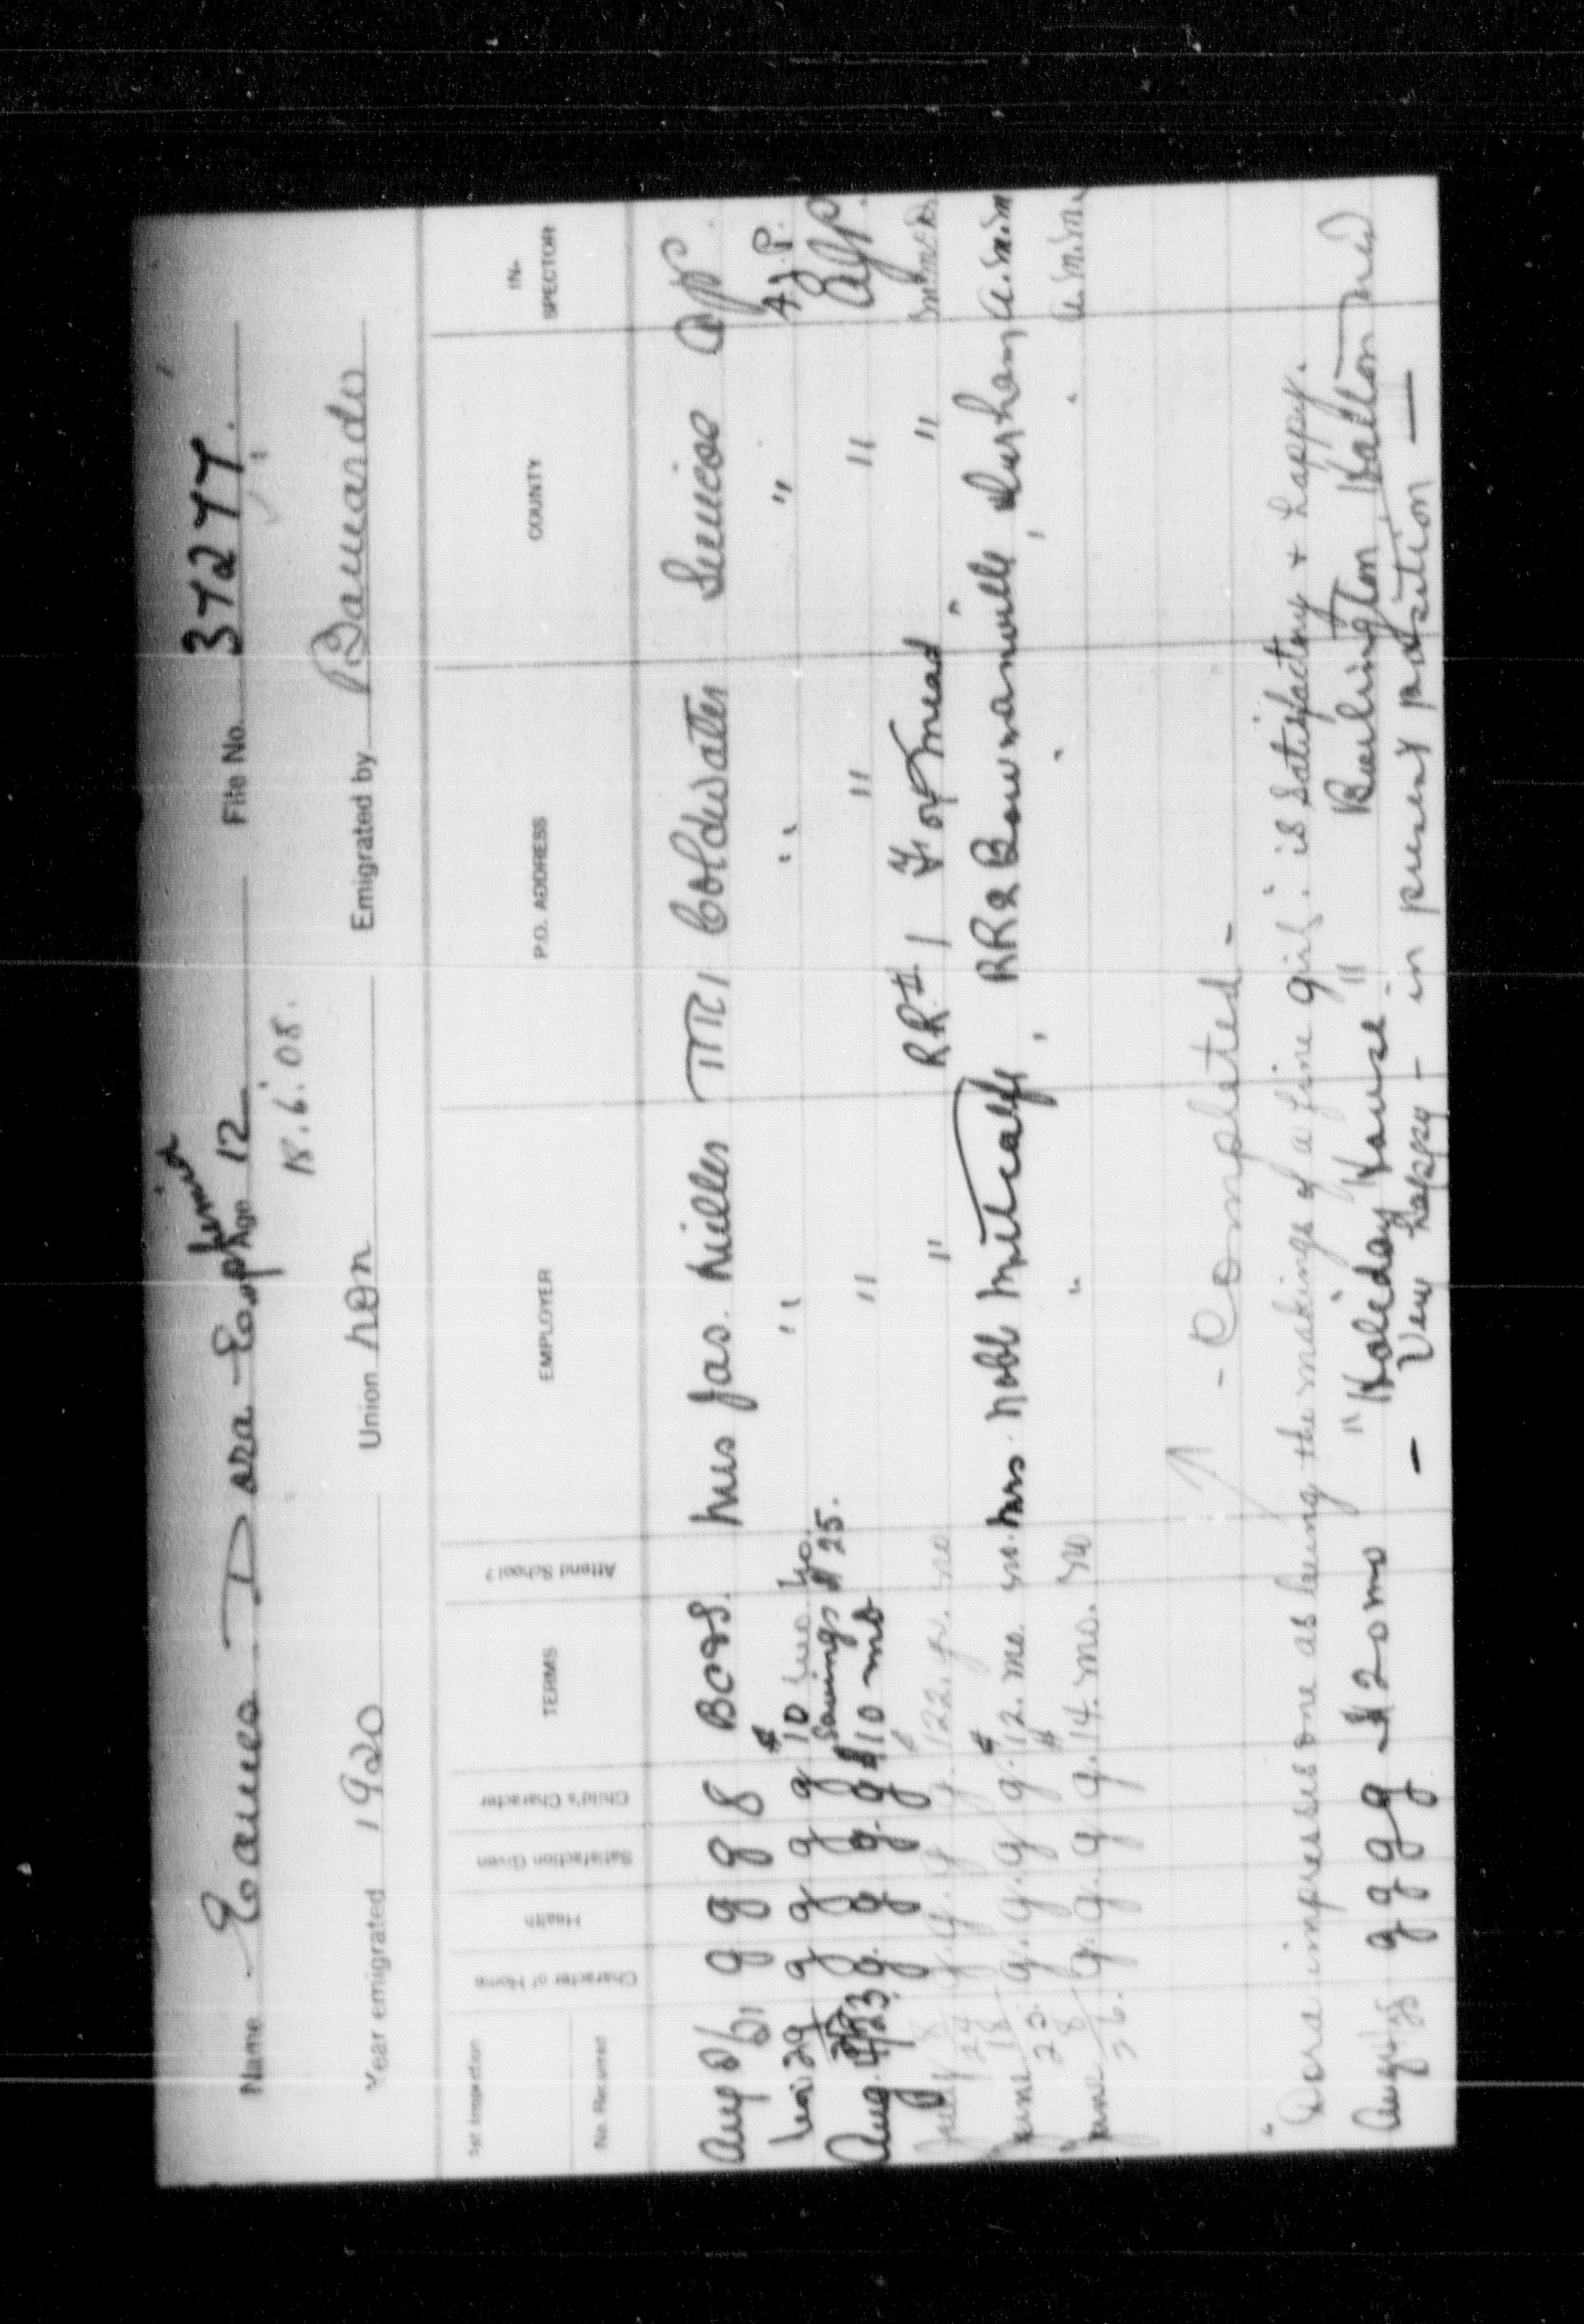 Name Eames Dora Euphemia Age 12 File No. 37277.
18.6.08.
Year emigrated 1920 Union non Emigrated by Barnardo
1st Inspection
No. Received
Character of Home
Health
Satisfaction Given
Child's Character
TERMS
Attend School?
EMPLOYER
P.O. ADDRESS
COUNTY
IN-SPECTOR
Aug 8/21 g g g g BC&S. Mrs Jas. Miller RR1 Coldwater Simcoe AJP
29 g g g g $10 mo. no. " " " A.J.P.
Savings $25.
Aug. 4/23. g. g. g. g $10 mo " " " AJP.
July 8/24 g. g. g g. $122. yr. no " RR# 1 Foxmead "
June 18/25. g. g. g g. $12. mo. no. Mrs. Nobl Metcalfe, RR2 Bowmanville, Durham, a.m.m
June 8/26. g. g. g g. $14. mo. no " " " a.m.m.
- Completed -
"Dora impresses one as being the makings of a fine girl: is satisfactory & happy.
Aug g g g g $20 mo "Holiday House" Burlington, Halton
- Very happy - in present position -